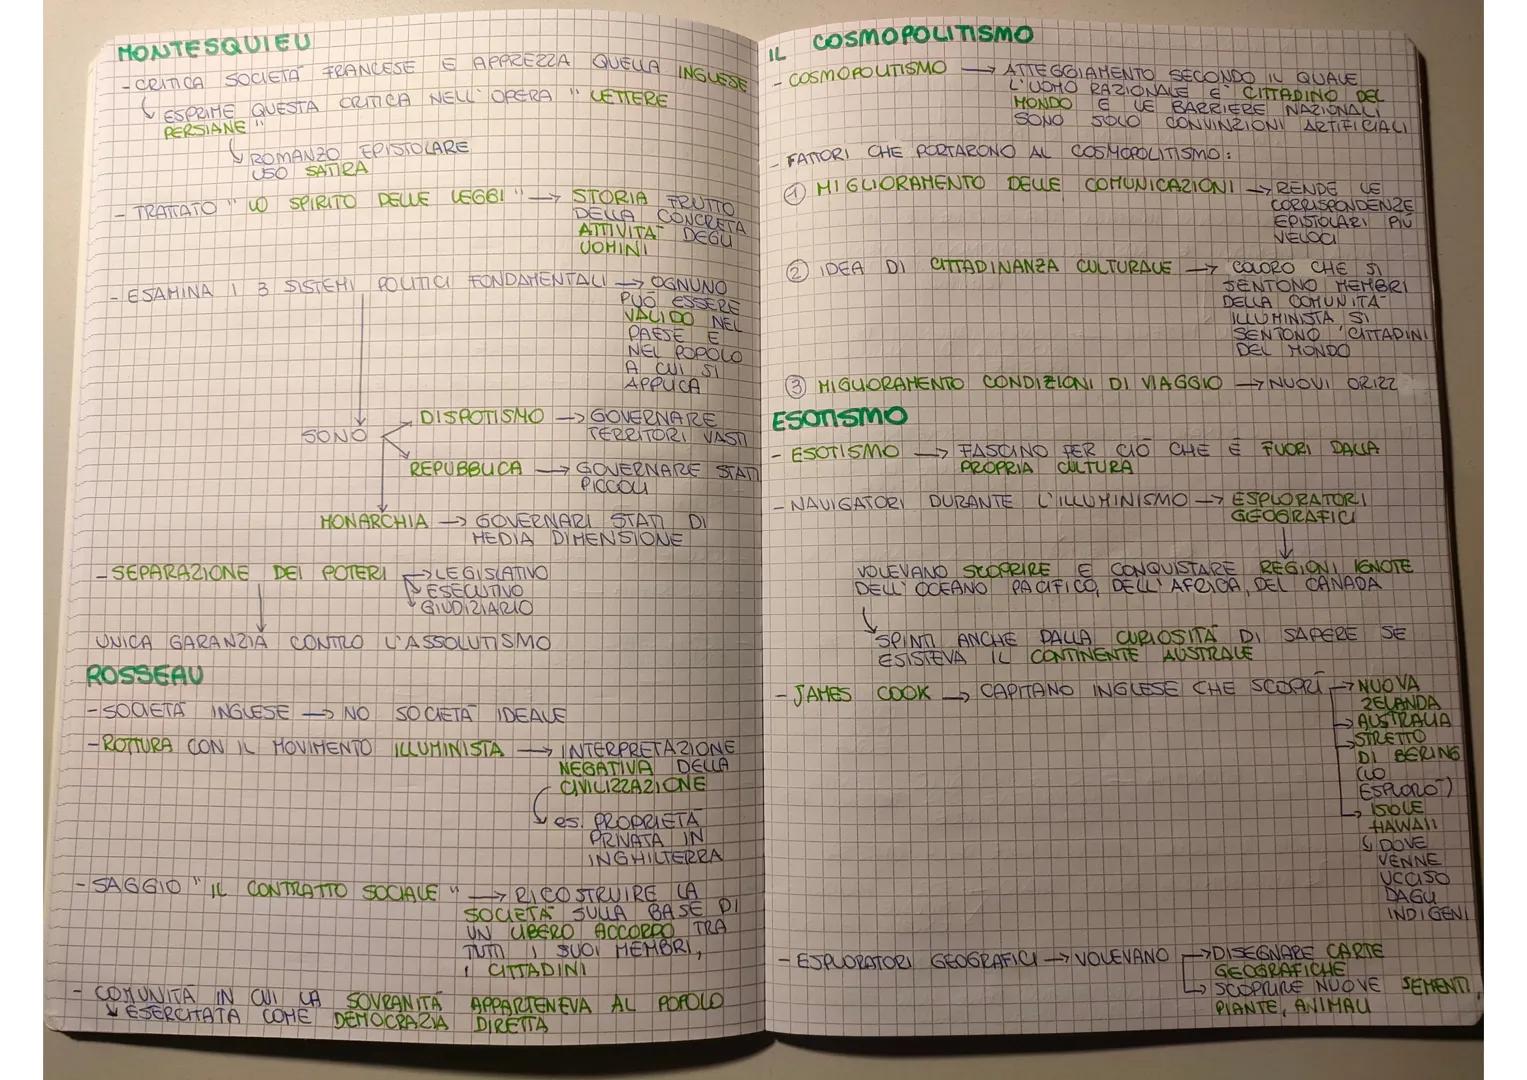 MONTESQUIEU
- CRITICA SOCIETÀ FRANCESE E APPREZZA QUELLA INGLESE
ESPRIME QUESTA CRITICA NELL'OPERA "LETTERE
PERSIANE"
ROMANZO EPISTOLARE
USO SATIRA
- TRATTATO "LO SPIRITO DELLE LEGGI" → STORIA FRUTTO
DELLA CONCRETA
ATTIVITA' DEGLI
UOMINI
- ESAMINA I 3 SISTEMI POLITICI FONDAMENTALI → OGNUNO
PUÒ ESSERE
VALIDO NEL
PAESE E
NEL POPOLO
A CUI SI
APPLICA
SONO
DISPOTISMO → GOVERNARE
TERRITORI VASTI
REPUBBLICA → GOVERNARE STATI
PICCOLI
MONARCHIA → GOVERNARI STATI DI
MEDIA DIMENSIONE
- SEPARAZIONE DEI POTERI → LEGISLATIVO
ESECUTIVO
GIUDIZIARIO
UNICA GARANZIA CONTRO L'ASSOLUTISMO
ROSSEAU
- SOCIETÀ INGLESE → NO SOCIETÀ IDEALE
- ROTTURA CON IL MOVIMENTO ILLUMINISTA → INTERPRETAZIONE
NEGATIVA DELLA
CIVILIZZAZIONE
es. PROPRIETÀ
PRIVATA IN
INGHILTERRA
- SAGGIO "IL CONTRATTO SOCIALE" → RICOSTRUIRE LA
SOCIETÀ SULLA BASE DI
UN LIBERO ACCORDO TRA
TUTTI I SUOI MEMBRI,
I CITTADINI
- COMUNITÀ IN CUI LA SOVRANITÀ APPARTENEVA AL POPOLO
ESERCITATA COME DEMOCRAZIA DIRETTA
IL COSMOPOLITISMO
- COSMOPOLITISMO → ATTEGGIAMENTO SECONDO IL QUALE
L'UOMO RAZIONALE E' CITTADINO DEL
MONDO E LE BARRIERE NAZIONALI
SONO SOLO CONVINZIONI ARTIFICIALI
- FATTORI CHE PORTARONO AL COSMOPOLITISMO:
① MIGLIORAMENTO DELLE COMUNICAZIONI → RENDE LE
CORRISPONDENZE
EPISTOLARI PIÙ
VELOCI
② IDEA DI CITTADINANZA CULTURALE → COLORO CHE SI
SENTONO MEMBRI
DELLA COMUNITÀ
ILLUMINISTA SI
SENTONO CITTADINI
DEL MONDO
③ MIGLIORAMENTO CONDIZIONI DI VIAGGIO → NUOVI ORIZZ
ESOTISMO
- ESOTISMO → FASCINO PER CIÒ CHE È FUORI DALLA
PROPRIA CULTURA
- NAVIGATORI DURANTE L'ILLUMINISMO → ESPLORATORI
GEOGRAFICI
VOLEVANO SCOPRIRE E CONQUISTARE REGIONI IGNOTE
DELL'OCEANO PACIFICO, DELL'AFRICA, DEL CANADA
SPINTI ANCHE DALLA CURIOSITÀ DI SAPERE SE
ESISTEVA IL CONTINENTE AUSTRALE
- JAMES COOK → CAPITANO INGLESE CHE SCOPRÌ → NUOVA
ZELANDA
→ AUSTRALIA
→ STRETTO
DI BERING
(LO
ESPLORO')
→ ISOLE
HAWAII
DOVE
VENNE
UCCISO
DAGLI
INDIGENI
- ESPLORATORI GEOGRAFICI → VOLEVANO → DISEGNARE CARTE
GEOGRAFICHE
→ SCOPRIRE NUOVE SEMENTI
PIANTE, ANIMALI